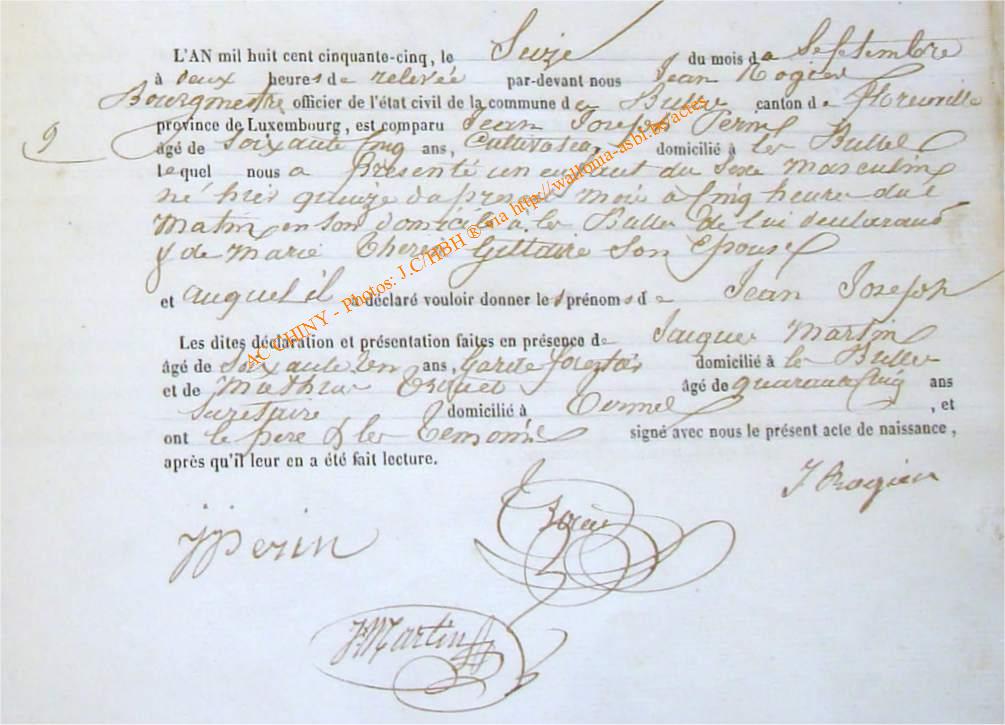 L'AN mil huit cent cinquante-cinq, le Seize du mois de Septembre
à deux heures de relevée par-devant nous Jean Rogier
Bourgmestre officier de l'état civil de la commune de Bulles canton de Florenville
9 province de Luxembourg, est comparu Jean Joseph Perin
âgé de Soixante Cinq ans, Cultivateur domicilié à les Bulles
Lequel nous a Présenté un enfant du Sexe Masculin
né hier quinze da present Mois à Cinq heure du
Matin en son domicile à les Bulles de lui declarant
& de Marie Therese Son Epouse
et auquel il a déclaré vouloir donner les prénoms de Jean Joseph
Les dites déclaration et présentation faites en présence de Jacques Martin
âgé de ans, Garde forestier domicilié à les Bulles
et de Mathieu âgé de quarante Cinq ans
domicilié à Termes , et
ont le pere & les Temoins signé avec nous le présent acte de naissance,
après qu'il leur en a été fait lecture.
J Rogier
JJ Perin
J Martin
AC CHINY - Photos: J.C/HBH ® via http://wallonia-asbl.be/actes